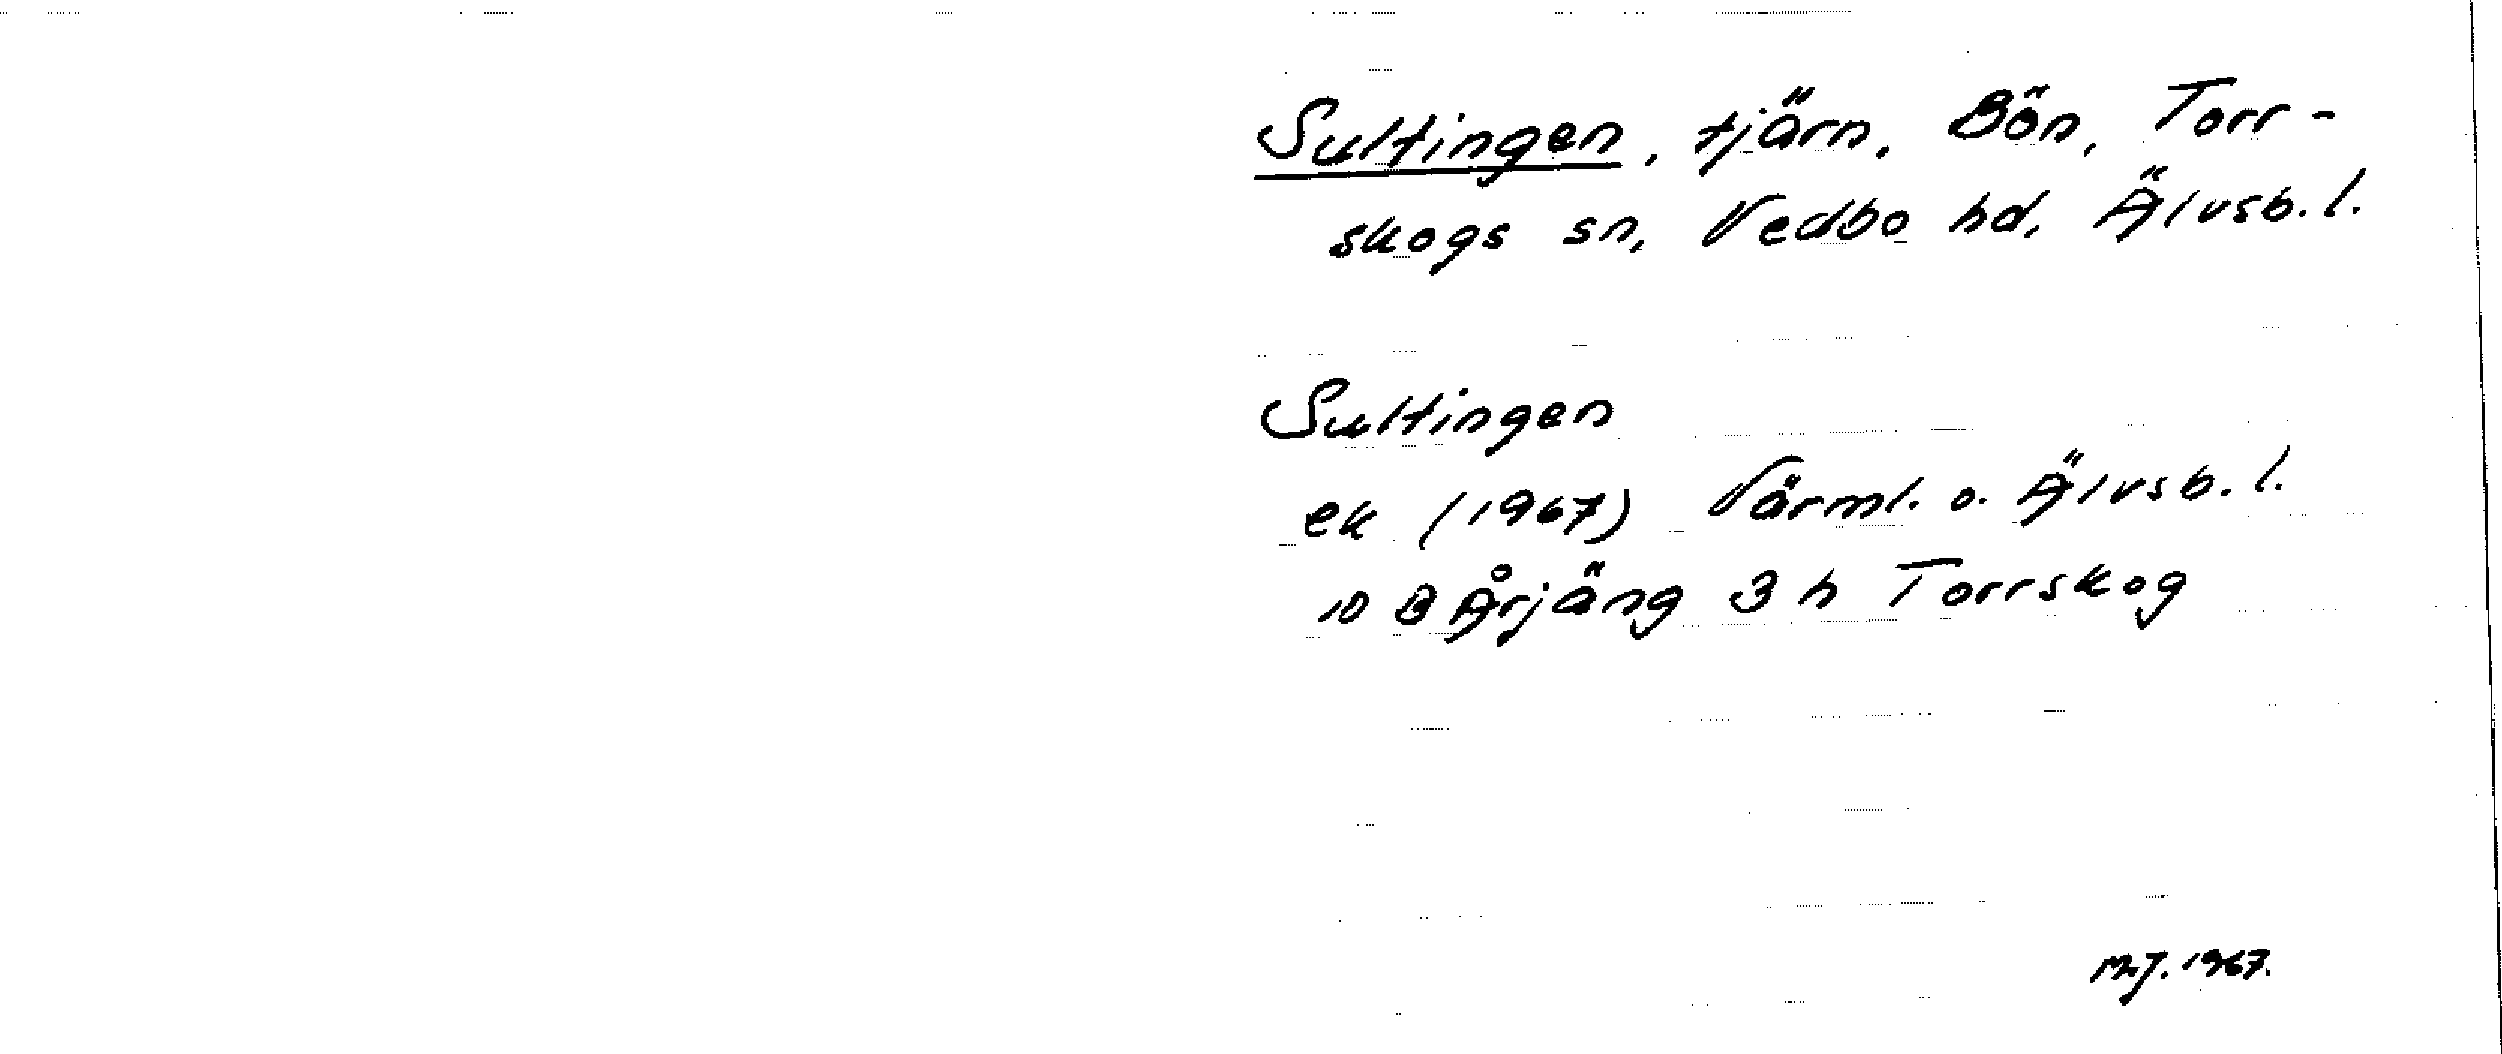 Sultingen, tjärn, Bön, Torr-
skogs sn, Vedbo hd, Älvsb. l.
Sultingen
ek (1967) Värml. o. Älvsb. l.
10 B Årjäng 3 h Torrskog
M.J. 1967.